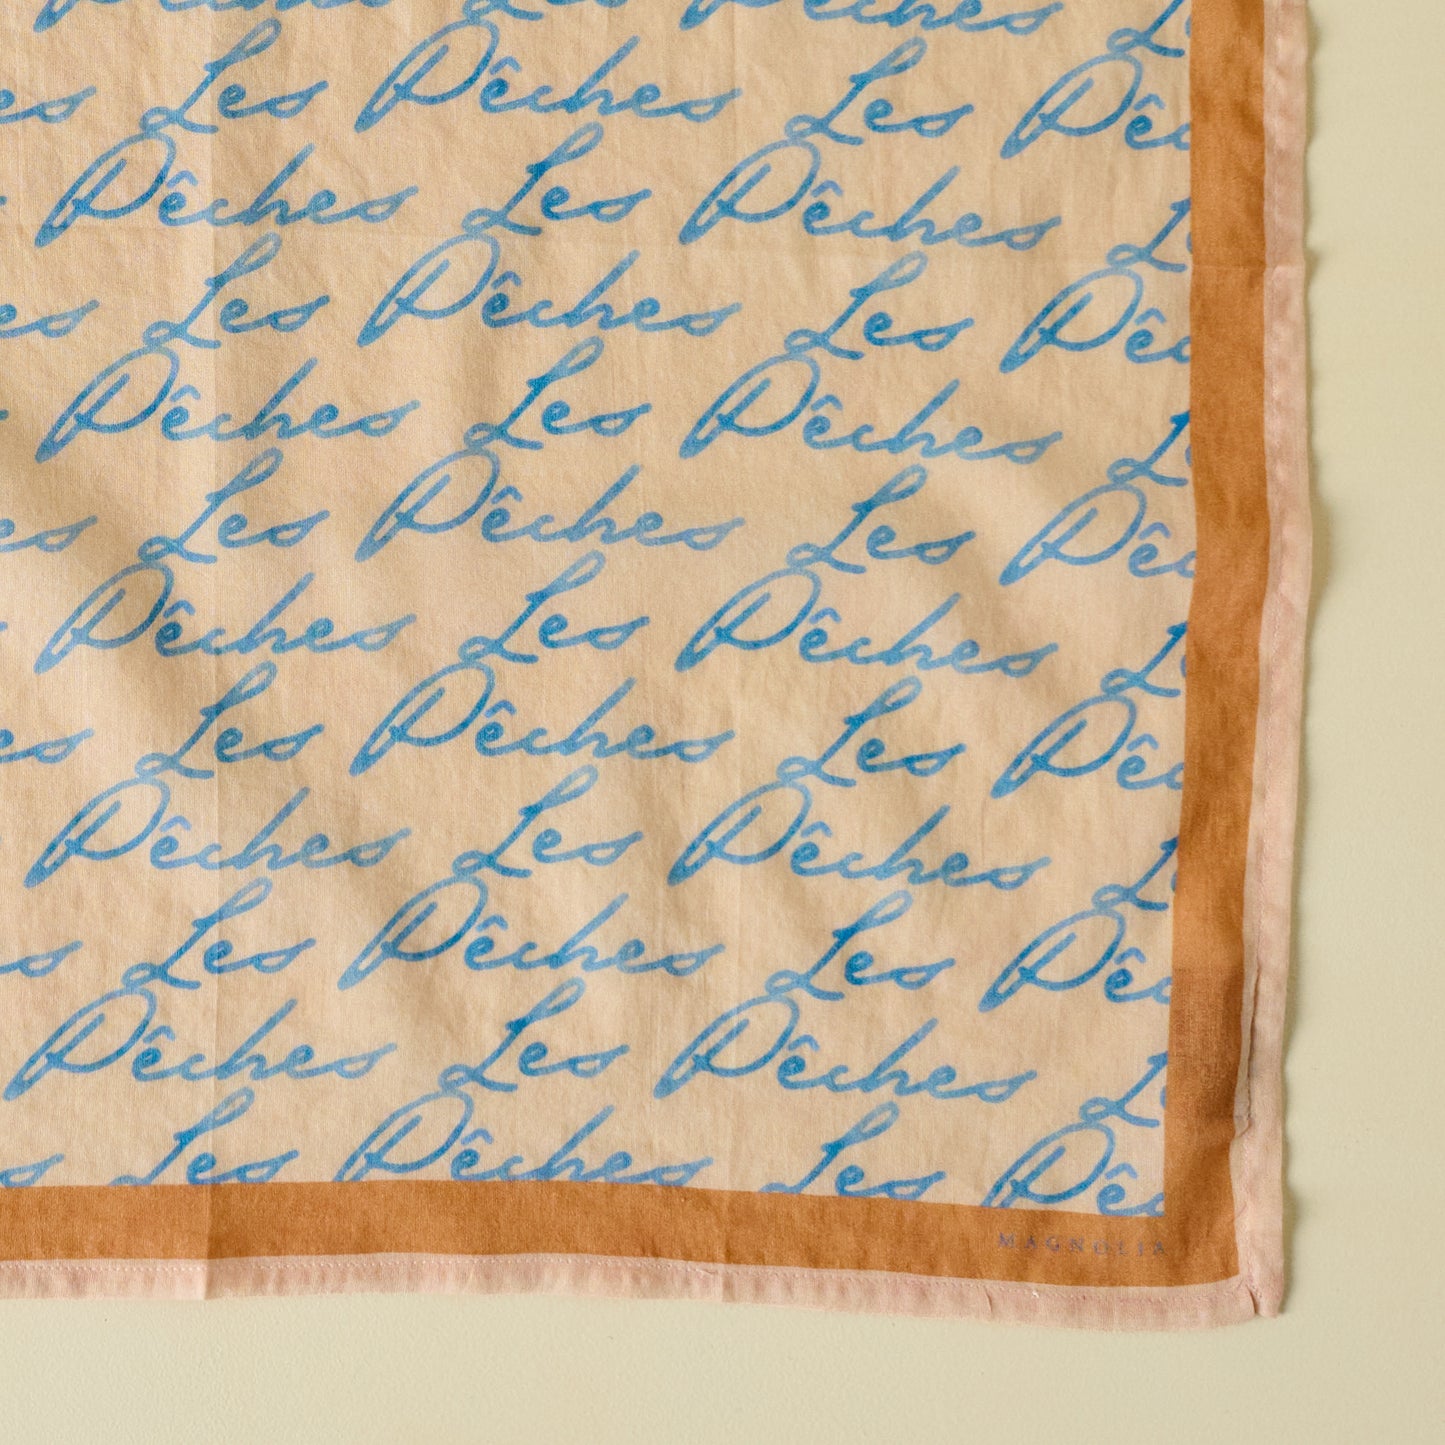 Pêches Les Pêches L
es Les Pêches Les Pê
Pêches Les Pêches L
es Les Pêches Les Pê
Pêches Les Pêches L
es Les Pêches Les Pê
Pêches Les Pêches L
es Les Pêches Les Pê
Pêches Les Pêches L
es Les Pêches Les Pê
Pêches Les Pêches L
Les Pêches Les Pê
MAGNOLIA